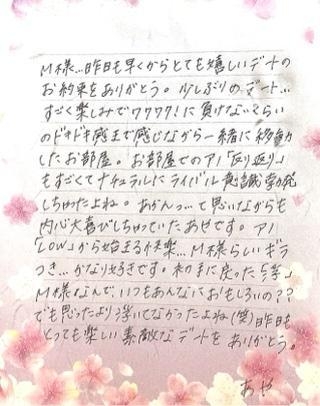 M様…昨日も早くからとても嬉しいデートの
お約束をありがとう。少しぶりのデート…
すごく楽しみでワクワク!に負けないくらい
のドキドキ感まで感じながら一緒に移動
したお部屋。お部屋でのアノ「反り返り」
もすごくてナチュラルにライバル意識勃発
しちゃったよね。あらんって思いながらも
内心大喜びしちゃっていたあやです。アノ
「LOW」から始まる快楽…M様らしいギラ
つき…かなり好きです。初手に戻った「写」
M様なんで、いつもあんなにおもしろいの??
でも思ったより浮いてなかったよね(笑)昨日も
とっても楽しい素敵なデートをありがとう。
あや